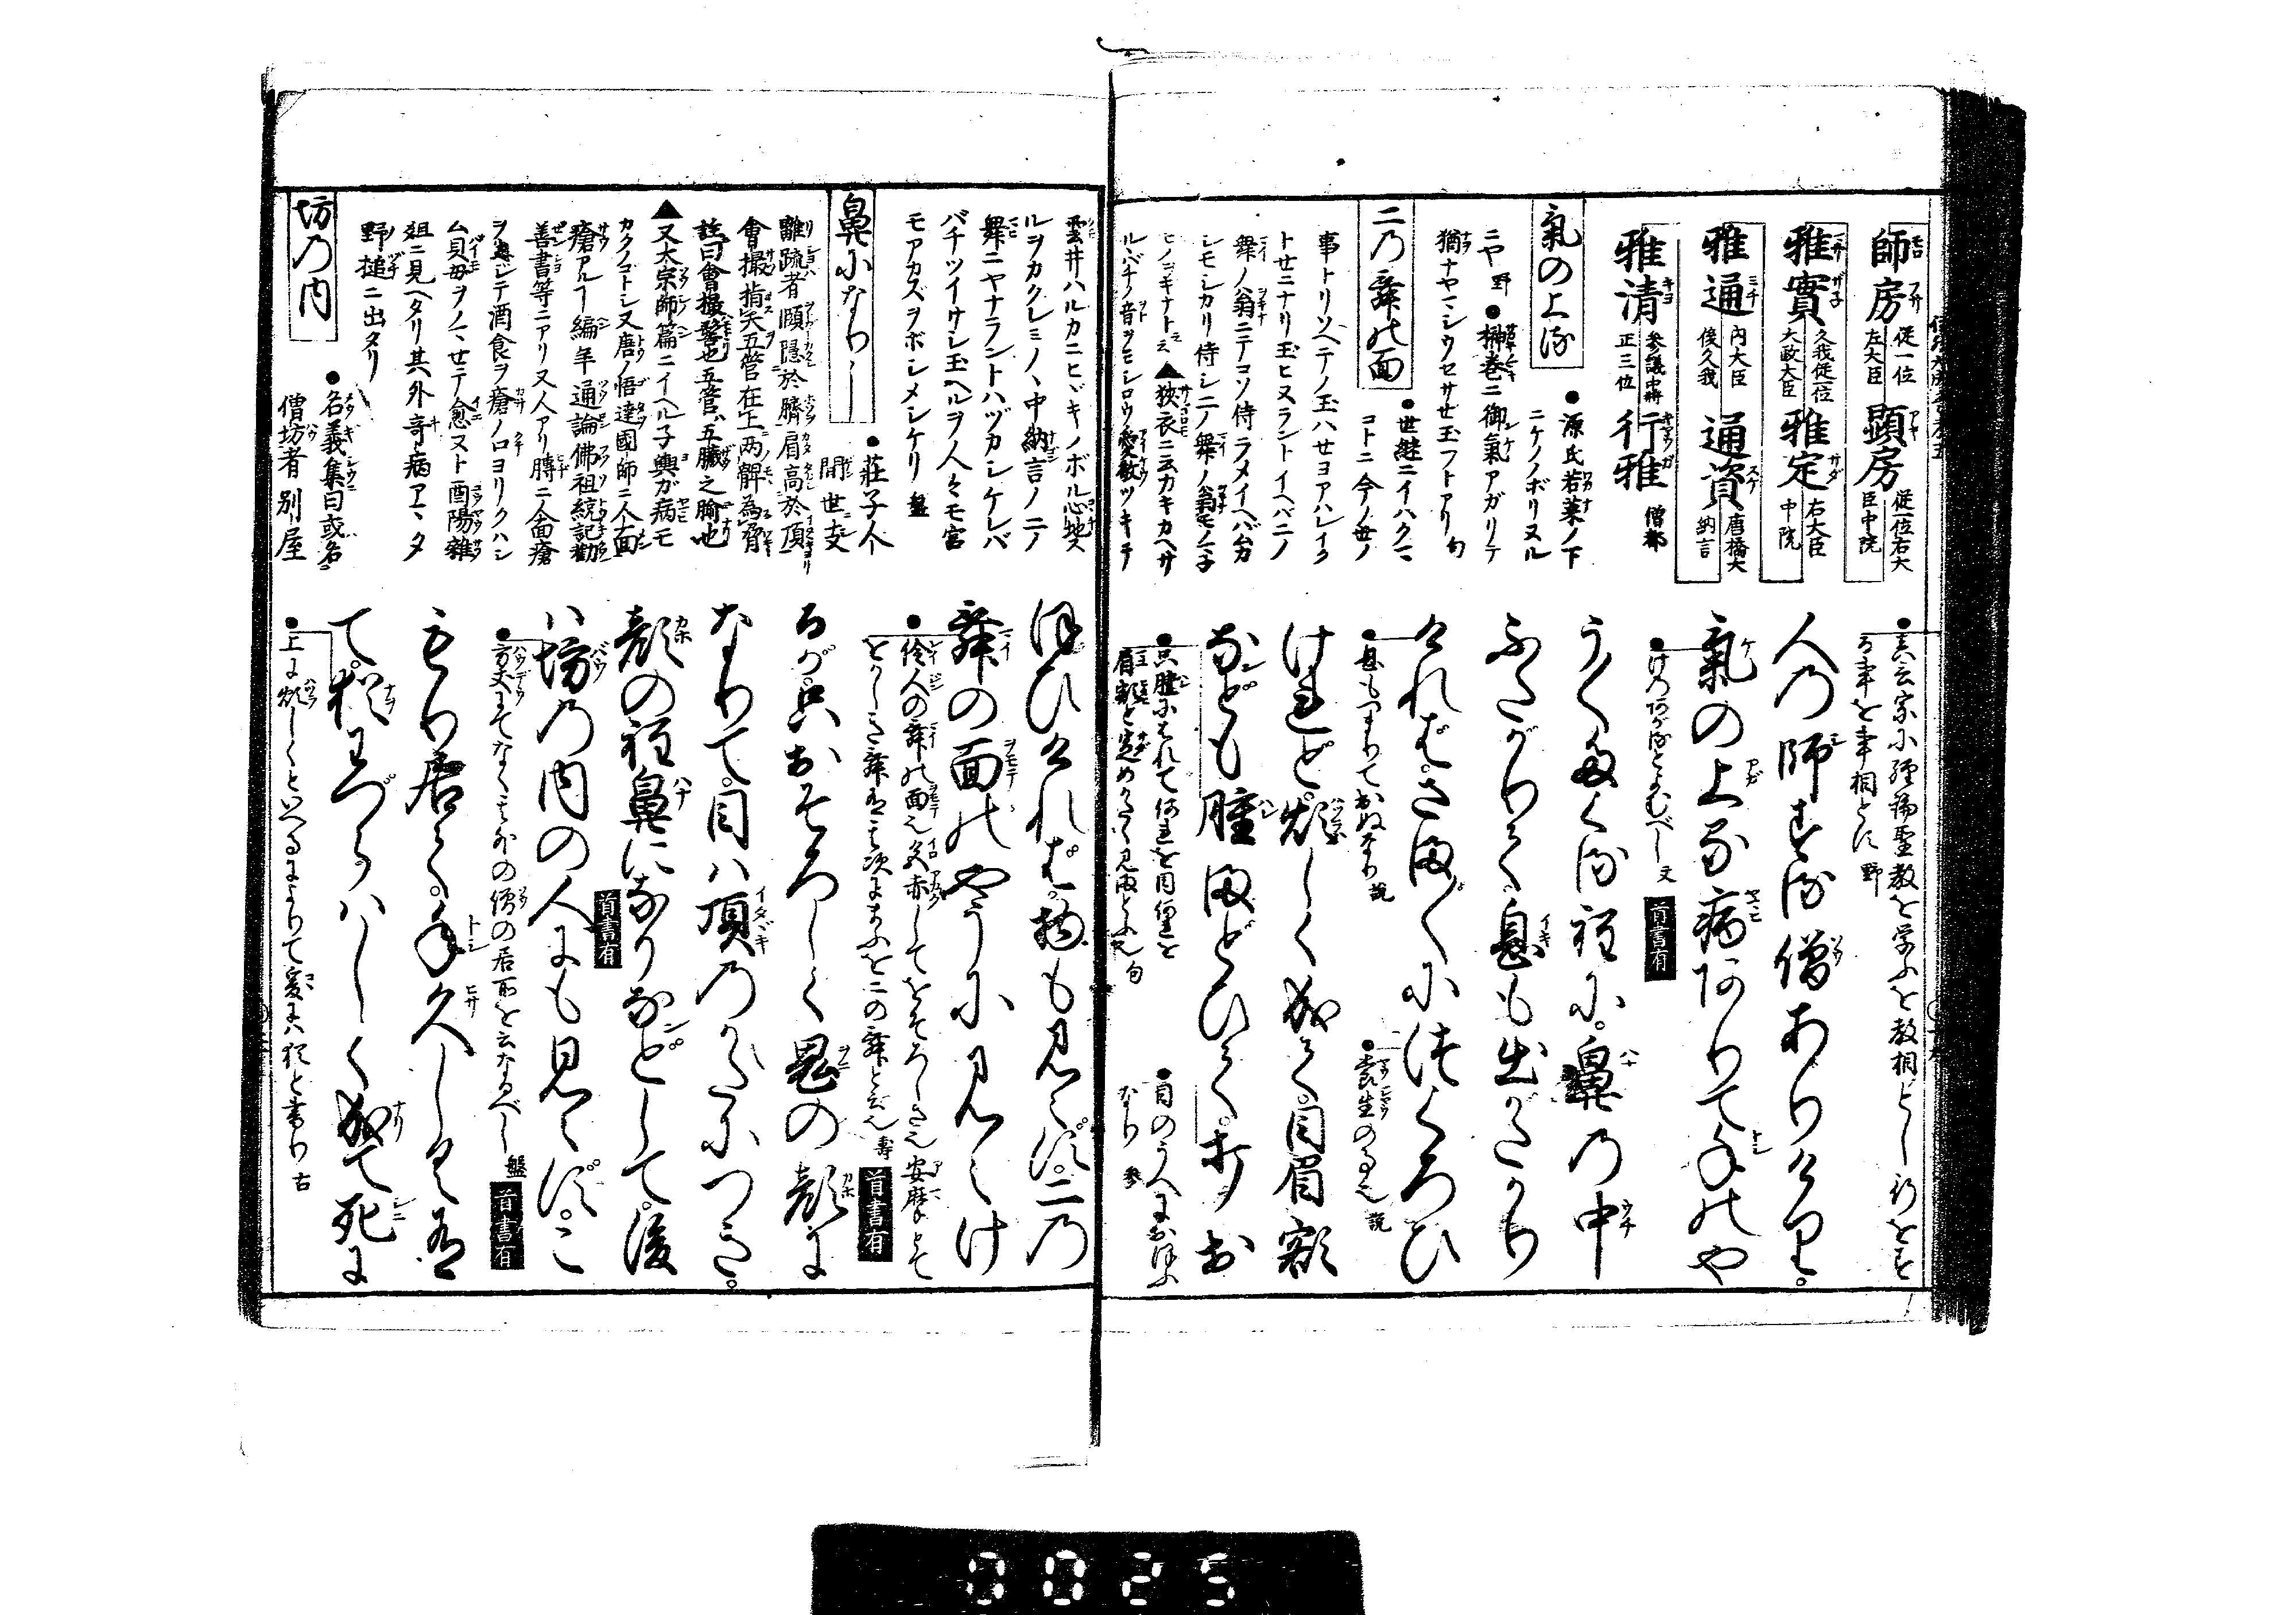 師房 従一位 左大臣 顕房 従一位右大臣中院
雅實 久我従一位 大政大臣 雅定 右大臣 中院
雅通 内大臣 後久我 通資 唐橋大納言
雅清 参議中将 正三位 行雅 僧都
氣の上る
●源氏若菜ノ下
ニケノノボリヌル
ニヤ 野 ●榊巻ニ御氣アガリテ
猶ナヤマシウセサせ玉フトアリ 句
二乃舞の面
●世継ニイハクマ
コトニ今ノ世ノ
事トリソヘテノ玉ハせヨアハレイク
トせニナリ玉ヒヌラントイヘバニノ
舞ノ翁ニテコソ侍ラメイヘバムカ
シモシカリ侍シニノ舞ノ翁モノマ子
▲狭衣ニ云カキカヘサ
ルバチノ音ヲモシロウ愛敬ツキテ
雲井ハルカニヒヾキノボル心地ス
ルヲカクレミノヽ中納言ノニノ
舞ニヤナラントハヅカシケレバ
バチツイサシ玉ヘルヲ人々モ宮
モアカズヲボシメシケリ 盤
鼻になりー
●荘子人
間世支
離疏者頤隠於臍肩高於頂
會撮指天五管在上両髀為脅
註曰會撮髻也五管ハ五臓之腧也
▲又大宗師篇ニイヘル子輿ガ病モ
カクノコトシ又唐ノ悟達國師ニ人面
瘡アルヿ編年通論佛祖統記勧
善書等ニアリ又人アリ膊ニ人面瘡
ヲ生ジテ酒食ヲ瘡ノロヨリクハシ
ム貝母ヲノマせテ愈ヌト酉陽雑
俎ニ見ヘタリ其外奇病アマタ
野槌ニ出タリ
坊乃内
●名義集曰或名
僧坊者別屋
●真言家に経論聖教を学ふを教相とし行をを
る事を事相と云 野
人乃師する僧ありけり。
氣の上る病ありて年のや
●けのあがるとよむべし 文 首書有
う〱たくる程に。鼻乃中
ふたがりて。息も出がたかり
ければ。さま〲につくろひ
●息もつまりておぬなり 説
●養生の事也 説
けれど。煩しく成て。目眉額
なども腫まどひて。打お
●只腫にはれて何を目何を
眉額と定めがたく見ゆると也 句
●目のうへにおほふ
なり 参
ほひければ。物も見えず。二乃
舞の面のやうに見えけ
●伶人の舞の面也色赤してをそろしき也安摩とて
をかしき舞有其次にまふを二の舞と云也 壽 首書有
るが。只おそろしく鬼の顔に
なりて。目ハ頂乃かたにつき。
額の程鼻になりなどして。後
首書有
ハ坊乃内の人にも見えず。こ
●方丈にてなく其外の僧の居所を云なるべし 盤 首書有
もり居て。年久しくて有
て。猶わづらハしく成て死に
●上に煩しくといへるによりて爰にハ猶と書り 古